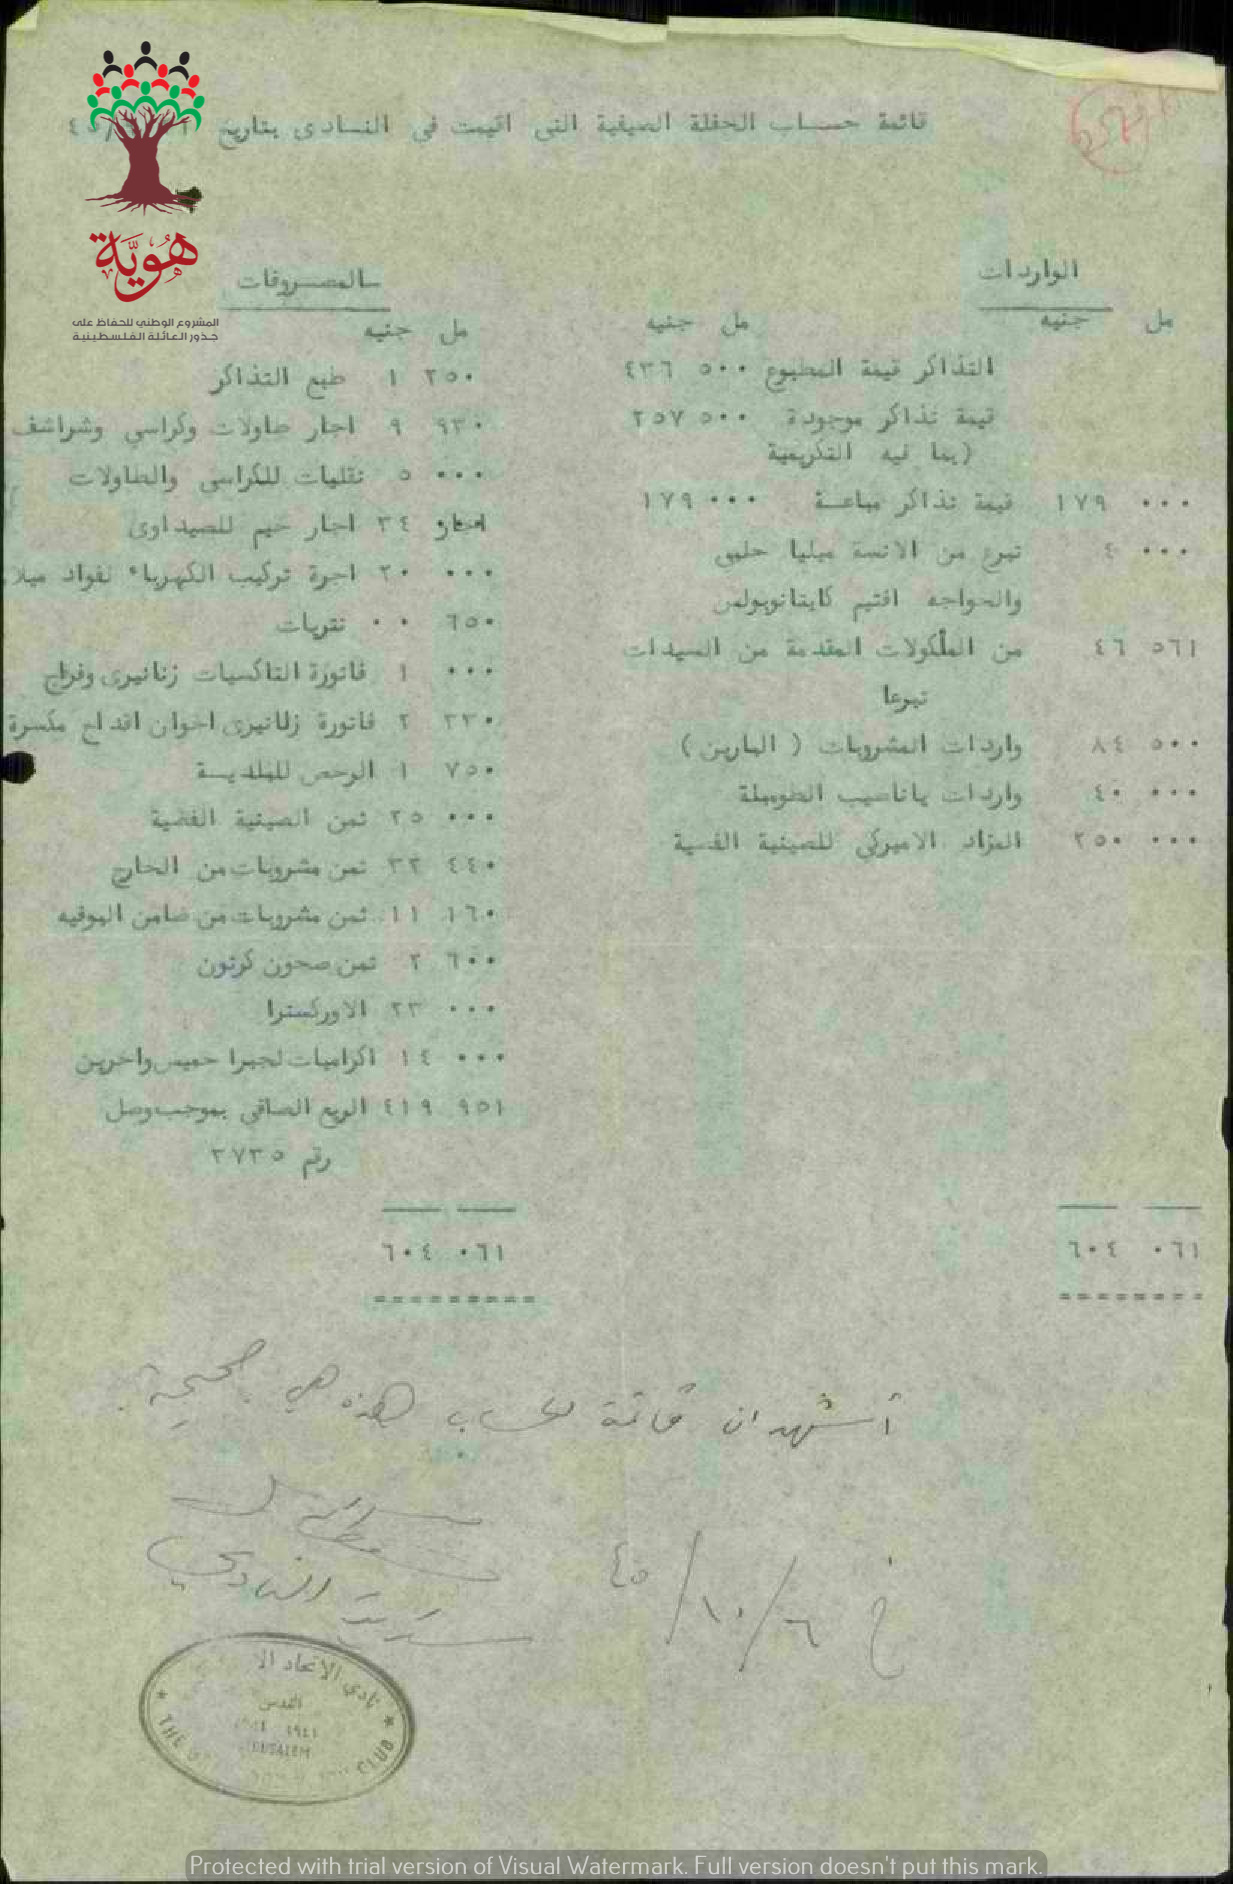 قائمة حساب الحفلة الصيفية التي اقيمت في النادى بتاريخ
هويّة
المشروع الوطني للحفاظ على
جذور العائلة الفلسطينية
الواردات
مل جنيه
مل جنيه
التذاكر قيمة المطبوع ٥٠٠ ٤٣٦
قيمة تذاكر موجودة ٥٠٠ ٢٥٧
(بما فيه التكريمية
٠٠٠ ١٧٩ قيمة تذاكر مباعة ٠٠٠ ١٧٩
٠٠٠ ٤ تبرع من الانسة ميليا حلبي
والخواجه افتيم كابتانوبولس
٥٦١ ٤٦ من المأكولات المقدمة من السيدات
تبرعا
٥٠٠ ٨٤ واردات المشروبات ( البارين )
٠٠٠ ٤٠ واردات ياناصيب الطومبلة
٠٠٠ ٢٥٠ المزاد الاميركي للصينية الفسية
٠٦١ ٦٠٤
المصروفات
مل جنيه
٢٥٠ ١ طبع التذاكر
٩٣٠ ٩ اجار طاولات وكراسي وشراشف
٠٠٠ ٥ نقليات للكراسى والطاولات
٣٤ اجار خيم للصيداوى
٠٠٠ ٢٠ اجرة تركيب الكهرباء لفواد ميلا
٦٥٠ ٠٠ نتريات
٠٠٠ ١ فاتورة التاكسيات زنانيرى وفراج
٣٣٠ ٢ فاتورة زنانيرى اخوان اقداح مكسرة
٧٥٠ ١ الرخص للبلدية
٠٠٠ ٢٥ ثمن الصينية الفضية
٤٤٠ ٣٢ ثمن مشروبات من الخارج
١٦٠ ١١ ثمن مشروبات من ضامن البوفيه
٦٠٠ ٢ ثمن صحون كرتون
٠٠٠ ٢٣ الاوركسترا
٠٠٠ ١٤ اكراميات لجبرا خميس واخرين
٩٥١ ٤١٩ الريع الصافي بموجب وصل
رقم ٢٧٣٥
٠٦١ ٦٠٤
أشهد ان قائمة الحساب هذه هي صحيحة.
في ٦/١٠/٤٥
سكرتير النادي
نادي الاتحاد
القدس
١٩٤١
THE CLUB
Protected with trial version of Visual Watermark. Full version doesn't put this mark.